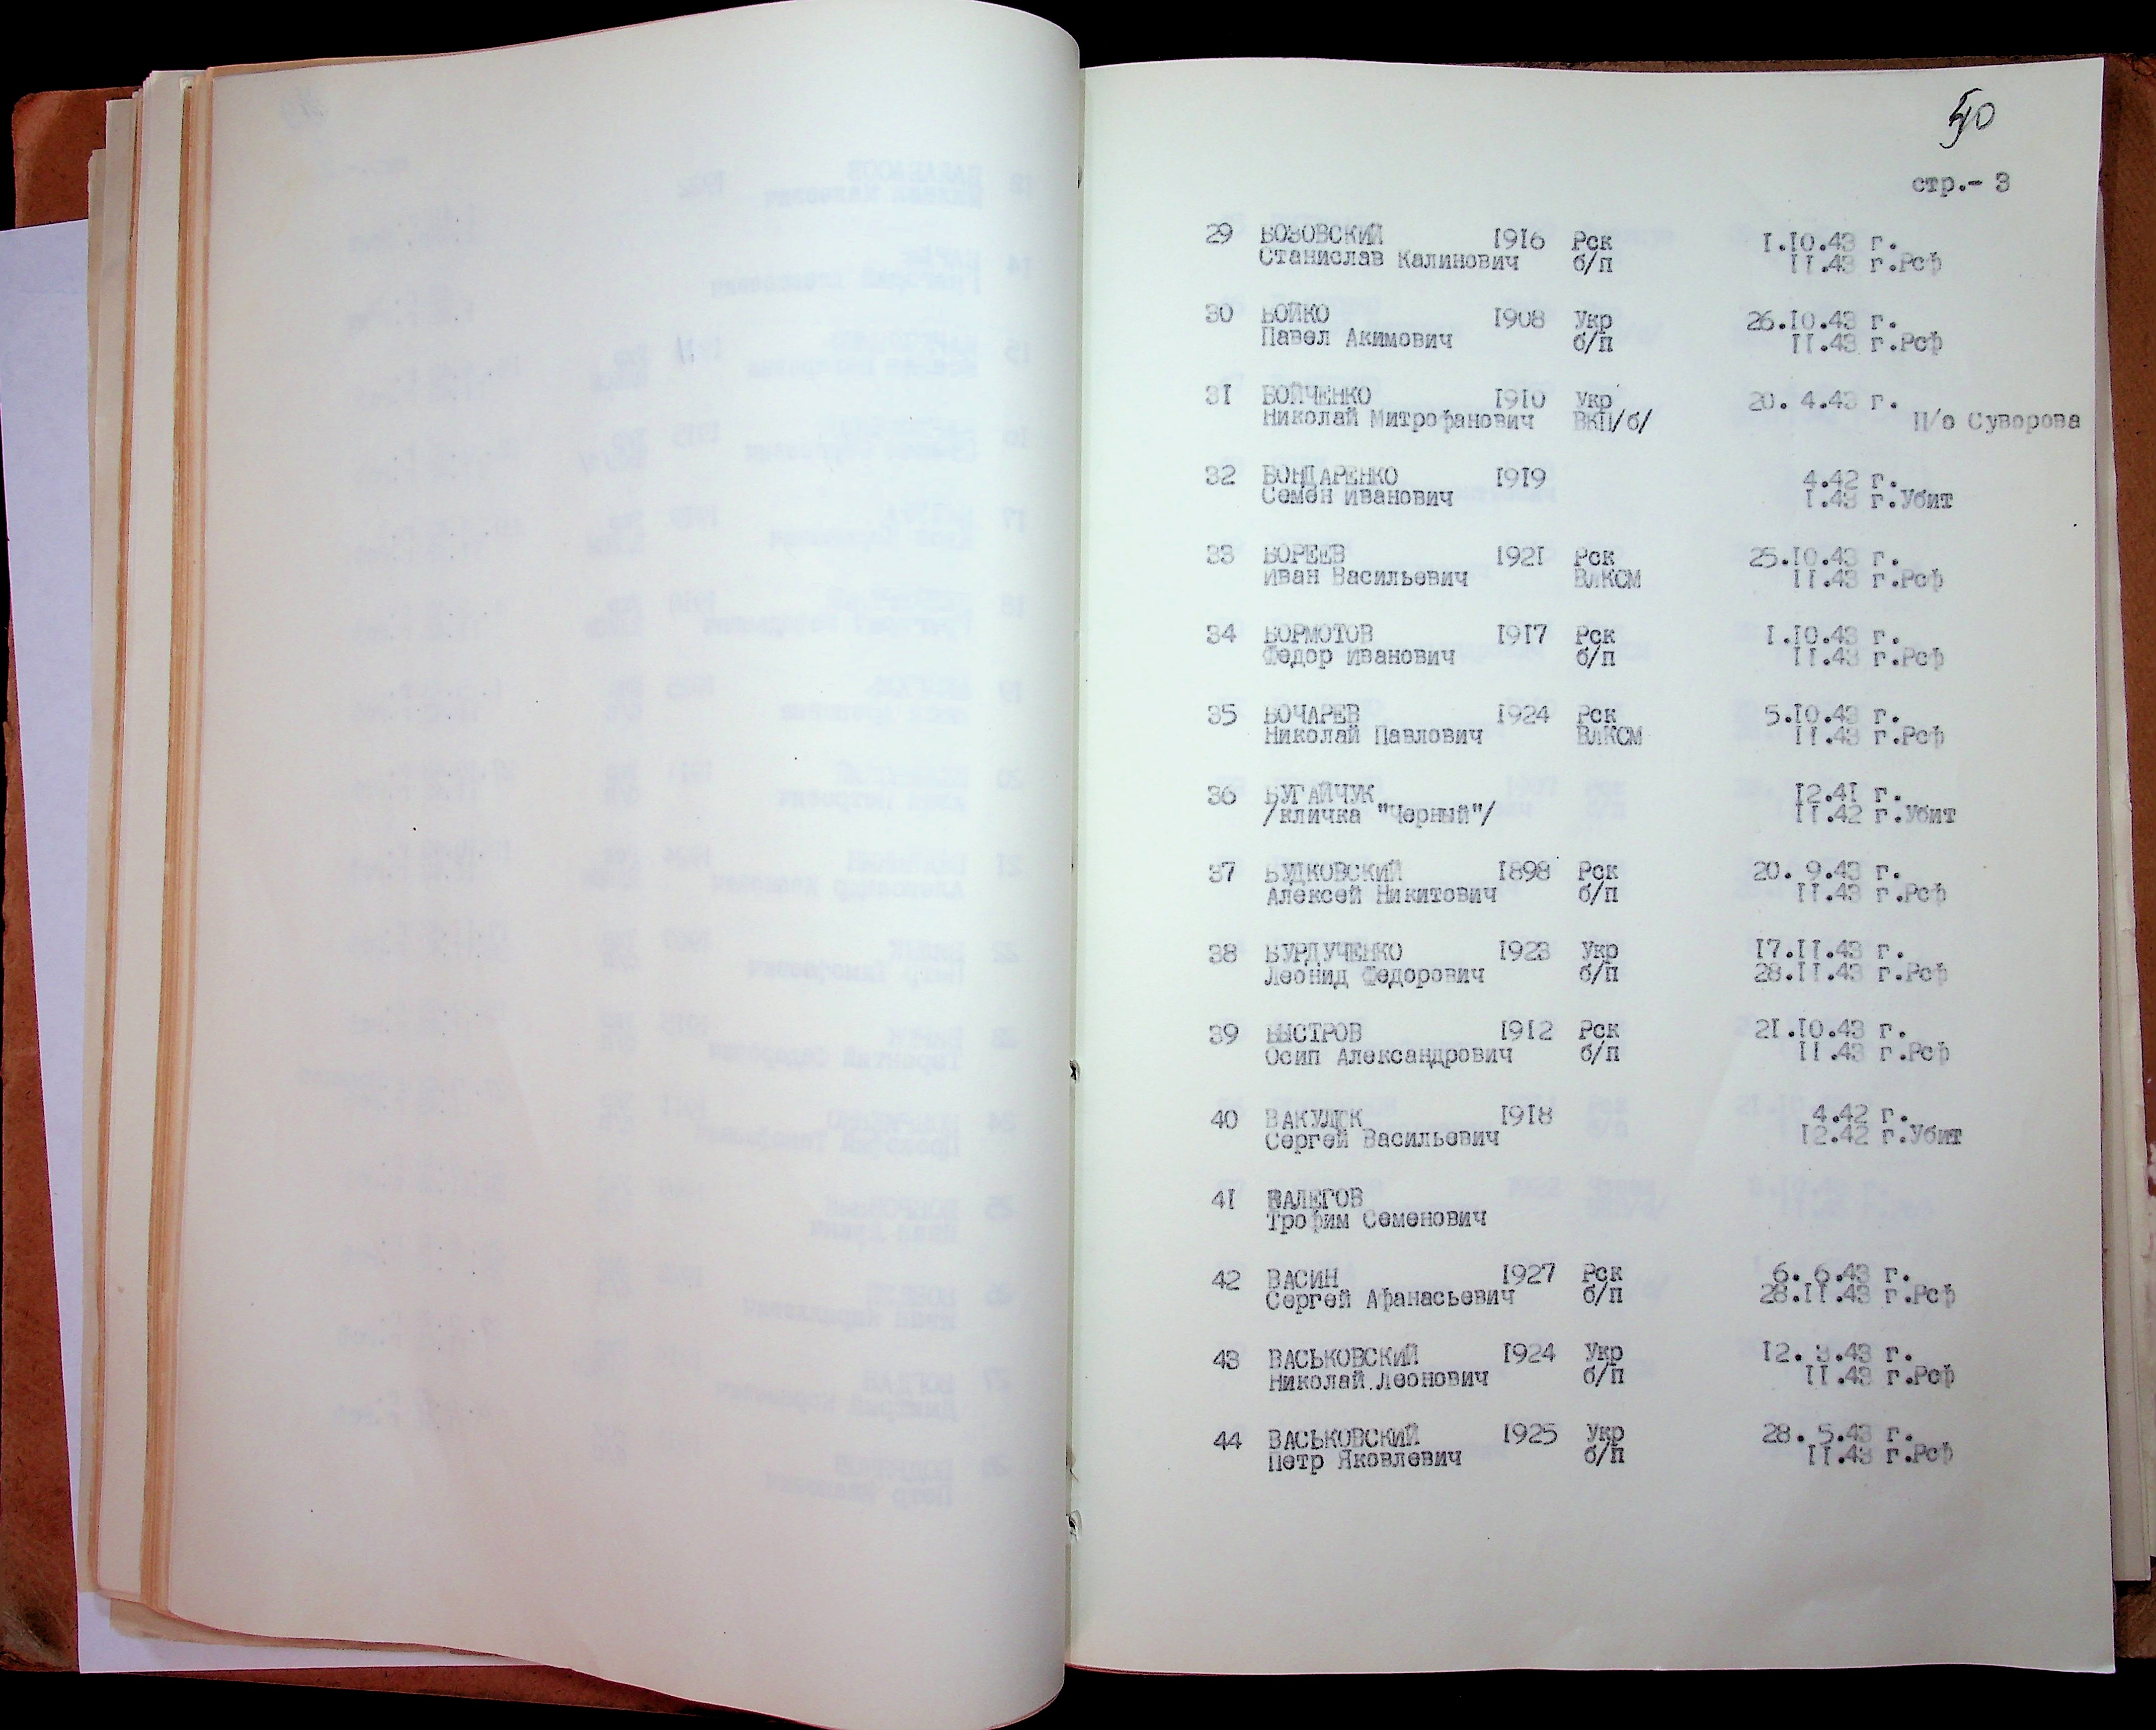 50
стр.- 3
29 БОЗОВСКИЙ 1916 Рск 1.10.43 г.
Станислав Калинович б/п 11.43 г.Рсф
30 БОЙКО 1908 Укр 26.10.43 г.
Павел Акимович б/п 11.43 г.Рсф
31 БОЙЧЕНКО 1910 Укр 20. 4.43 г.
Николай Митрофанович ВКП/б/ П/о Суворова
32 БОНДАРЕНКО 1919 4.42 г.
Семен Иванович 1.43 г.Убит
33 БОРЕЕВ 1921 Рск 25.10.43 г.
Иван Васильевич ВЛКСМ 11.43 г.Рсф
34 БОРМОТОВ 1917 Рск 1.10.43 г.
Федор Иванович б/п 11.43 г.Рсф
35 БОЧАРЕВ 1924 Рск 5.10.43 г.
Николай Павлович ВЛКСМ 11.43 г.Рсф
36 БУГАЙЧУК 12.41 г.
/кличка "Черный"/ 11.42 г.Убит
37 БУДКОВСКИЙ 1898 Рск 20. 9.43 г.
Алексей Никитович б/п 11.43 г.Рсф
38 БУРДУЧЕНКО 1923 Укр 17.11.43 г.
Леонид Федорович б/п 28.11.43 г.Рсф
39 БЫСТРОВ 1912 Рск 21.10.43 г.
Осип Александрович б/п 11.43 г.Рсф
40 ВАКУЛЮК 1918 4.42 г.
Сергей Васильевич 12.42 г.Убит
41 ВАЛЕГОВ
Трофим Семенович
42 ВАСИН 1927 Рск 6. 6.43 г.
Сергей Афанасьевич б/п 28.11.43 г.Рсф
43 ВАСЬКОВСКИЙ 1924 Укр 12. 3.43 г.
Николай Леонович б/п 11.43 г.Рсф
44 ВАСЬКОВСКИЙ 1925 Укр 28. 5.43 г.
Петр Яковлевич б/п 11.43 г.Рсф